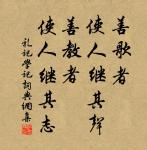 善歌者
使人继其聲
善教者
使人继其志
礼记學记詞典網集